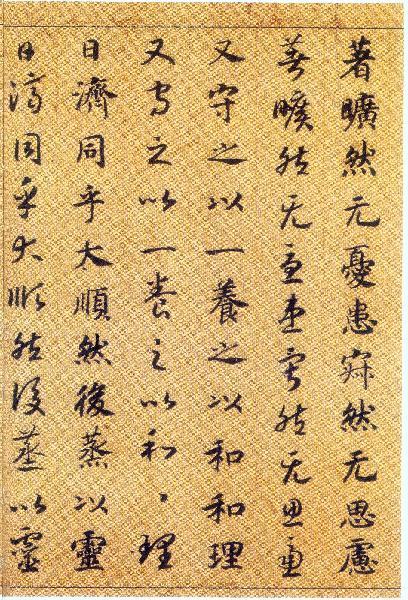 著曠然无憂患寂然无思慮
著曠然无憂患寂然无思慮
又守之以一養之以和和理
又守之以一養之以和〻理
日濟同乎大順然後蒸以靈
日濟同乎大順然後蒸以靈